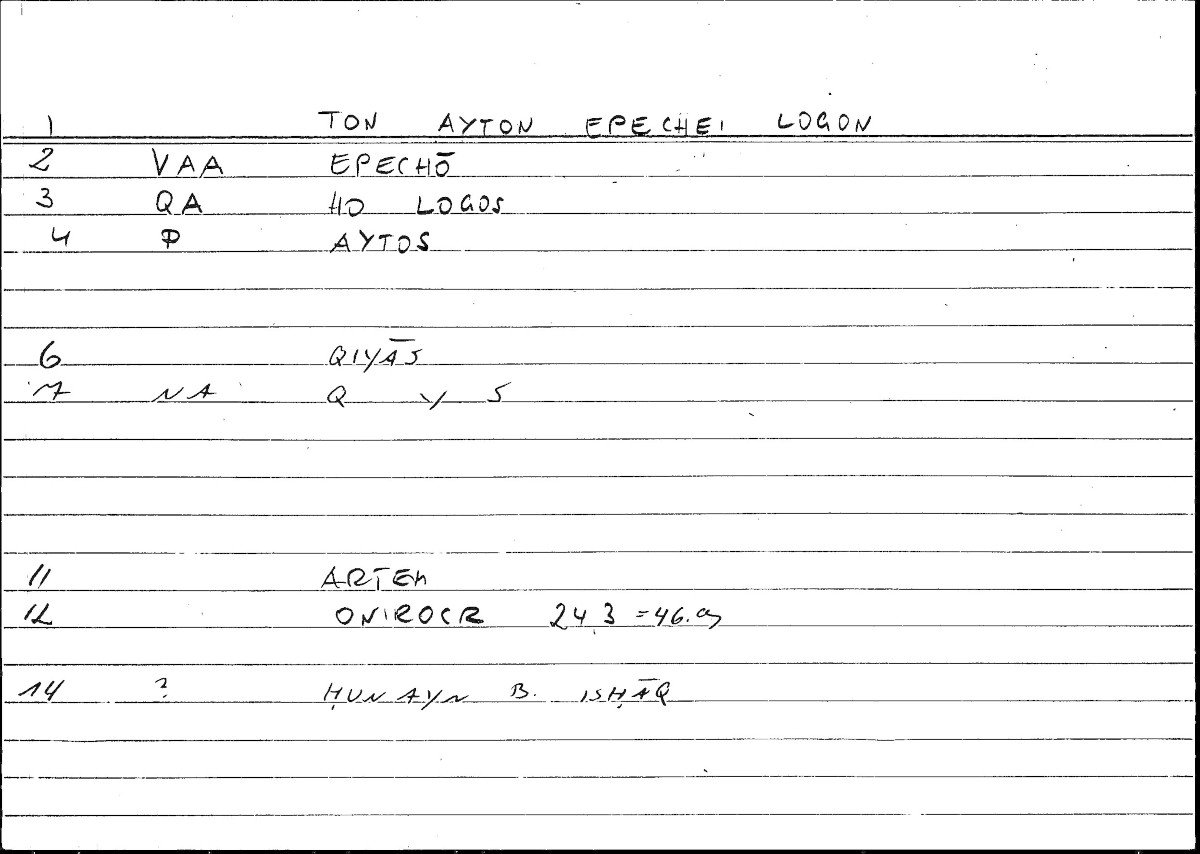 1 TON AYTON EPECHEI LOGON
2 VAA EPECHŌ
3 QA HO LOGOS
4 P AYTOS
6 QIYĀS
7 NA Q Y S
11 ARTEM
12 ONIROCR 24,3 = 46.9
14 ? ḤUNAYN B. ISḤĀQ